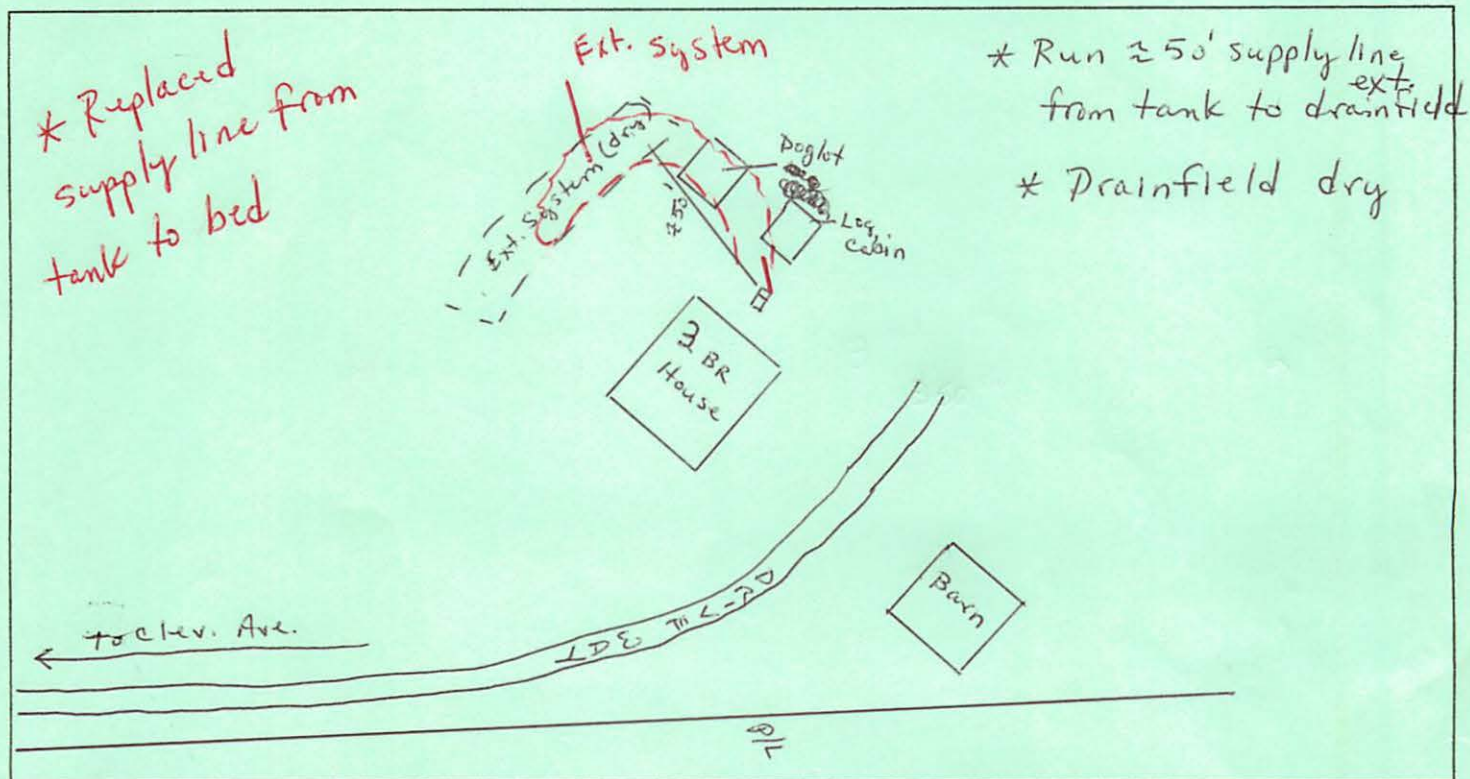 * Replaced
supply line from
tank to bed
Ext. system
* Run ≈ 50' supply line
ext.
from tank to drainfield
* Drainfield dry
Ext. System (dry)
≈50'
Doglot
Log
Cabin
3 BR
House
Barn
To Clev. Ave.
P/L